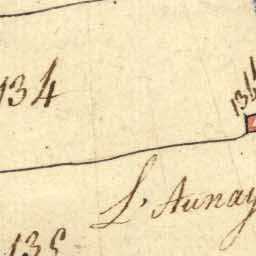 134
134
L'Aunay
135